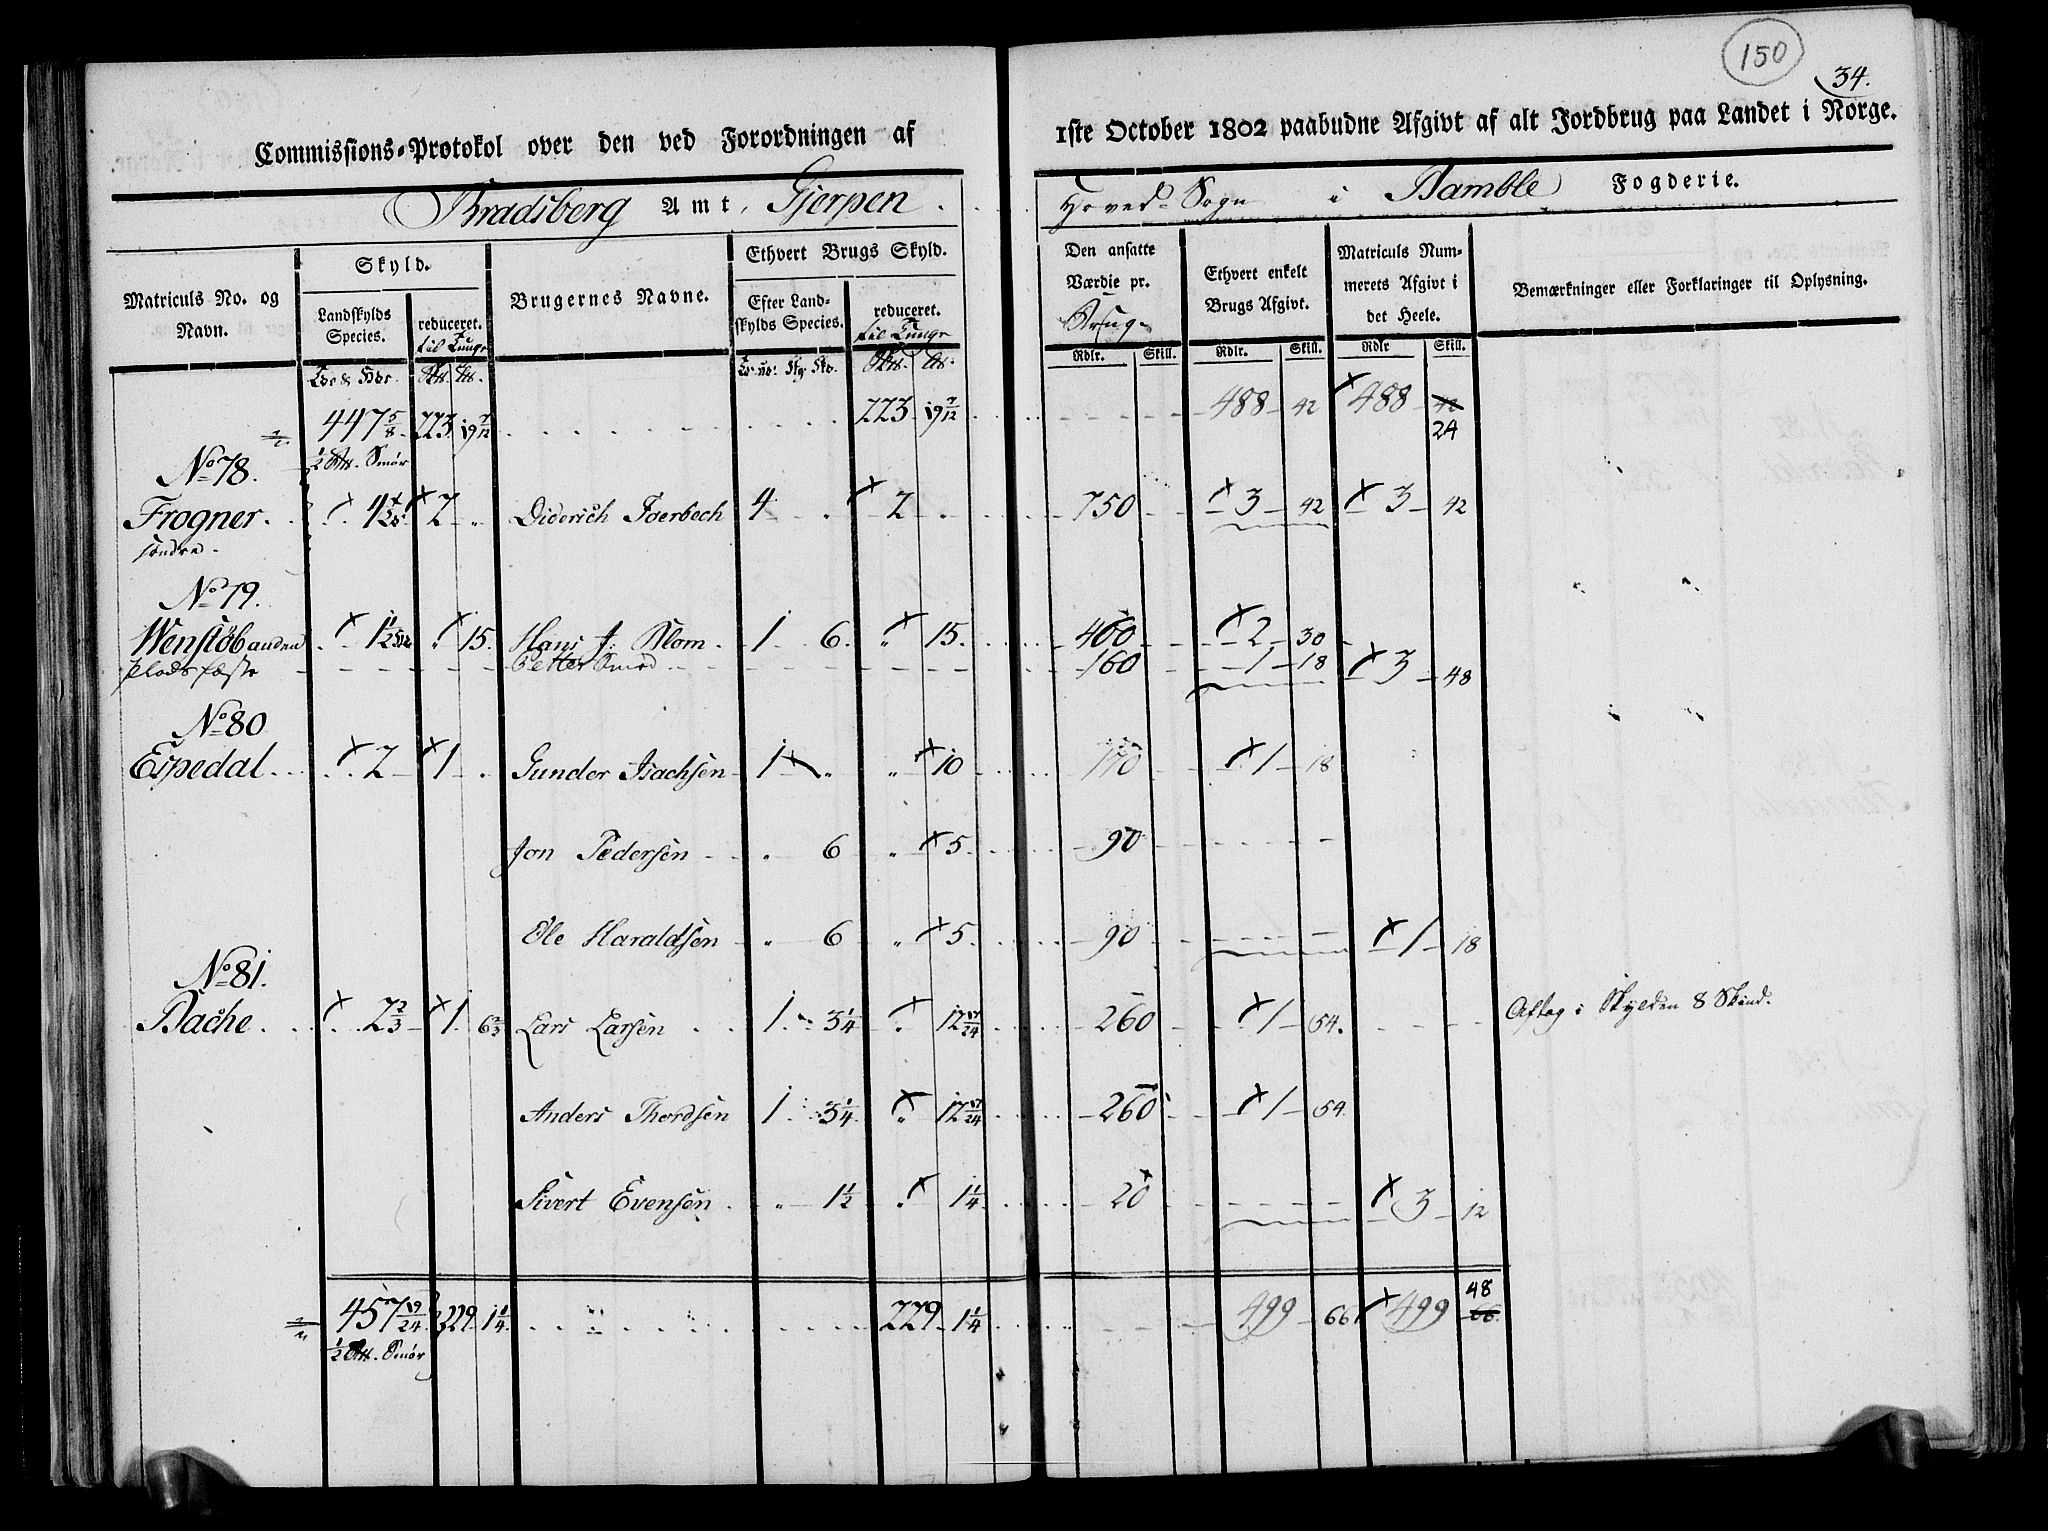 150
34.
Commissions-Protokol over den ved Forordningen af 1ste October 1802 paabudne Afgivt af alt Jordbrug paa Landet i Norge.
Bradsberg Amt, Gjerpen Hoved-Sogn i Bamble Fogderie.
Matriculs No. og Navn.
Skyld.
Landskylds Species.
reduceret. til Tunge
Brugernes Navne.
Ethvert Brugs Skyld.
Efter Landskylds Species.
reduceret. til Tunge
Den ansatte Værdie pr. Brug.
Ethvert enkelt Brugs Afgivt.
Matriculs Nummerets Afgivt i det Heele.
Bemærkninger eller Forklaringer til Oplysning.
Rdlr. Skill. Rdlr. Skill. Rdlr Skill.
447 5/8 223 19 7/12 223 19 7/12 488 42 488 42
1/2 Smör 24
No 78.
Frogner 4 2 Diderich Foerbech 4 2 750 3 42 3 42
söndre.
No 79.
Wenstöb anden 1 1/2 15. Hans J: Blom. 1 6. 15. 400 2 30
Plads fæste Petter Smed 160 1 18 3 48
No 80
Espedal 2 1 Gunder Isachsen 1 10 170 1 18
Jon Pedersen 6 5 90
Ole Haraldsen 6 5. 90 1 18
No 81.
Bache 2 2/3 1. 6 2/3 Lars Larsen 1. 3 1/4 12 17/24 260 1 54.
Aftag i Skylden 8 Skind.
Anders Thordsen 1 3 1/4 12 17/24 260 1 54.
Sivert Evensen 1 1/2 1 1/4 20 3 12
457 19/24 229 1 1/4 229 1 1/4 499 66 499 66.
1/2 Smör 48